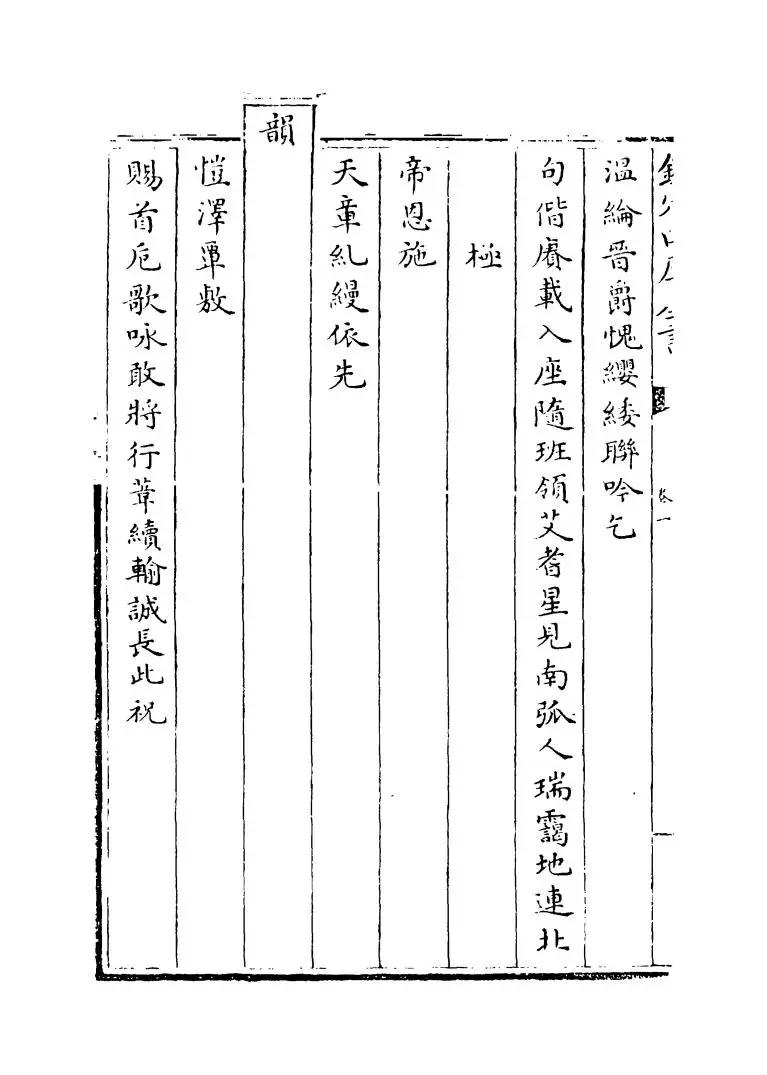 欽定四庫全書
卷一
溫綸晉爵愧纓緌聯吟乞
句偕賡載入座隨班領艾耆星見南弧人瑞靄地連北
極
帝恩施
天章糺縵依先
韻
愷澤覃敷
賜首卮歌咏敢將行葦續輸誠長此祝